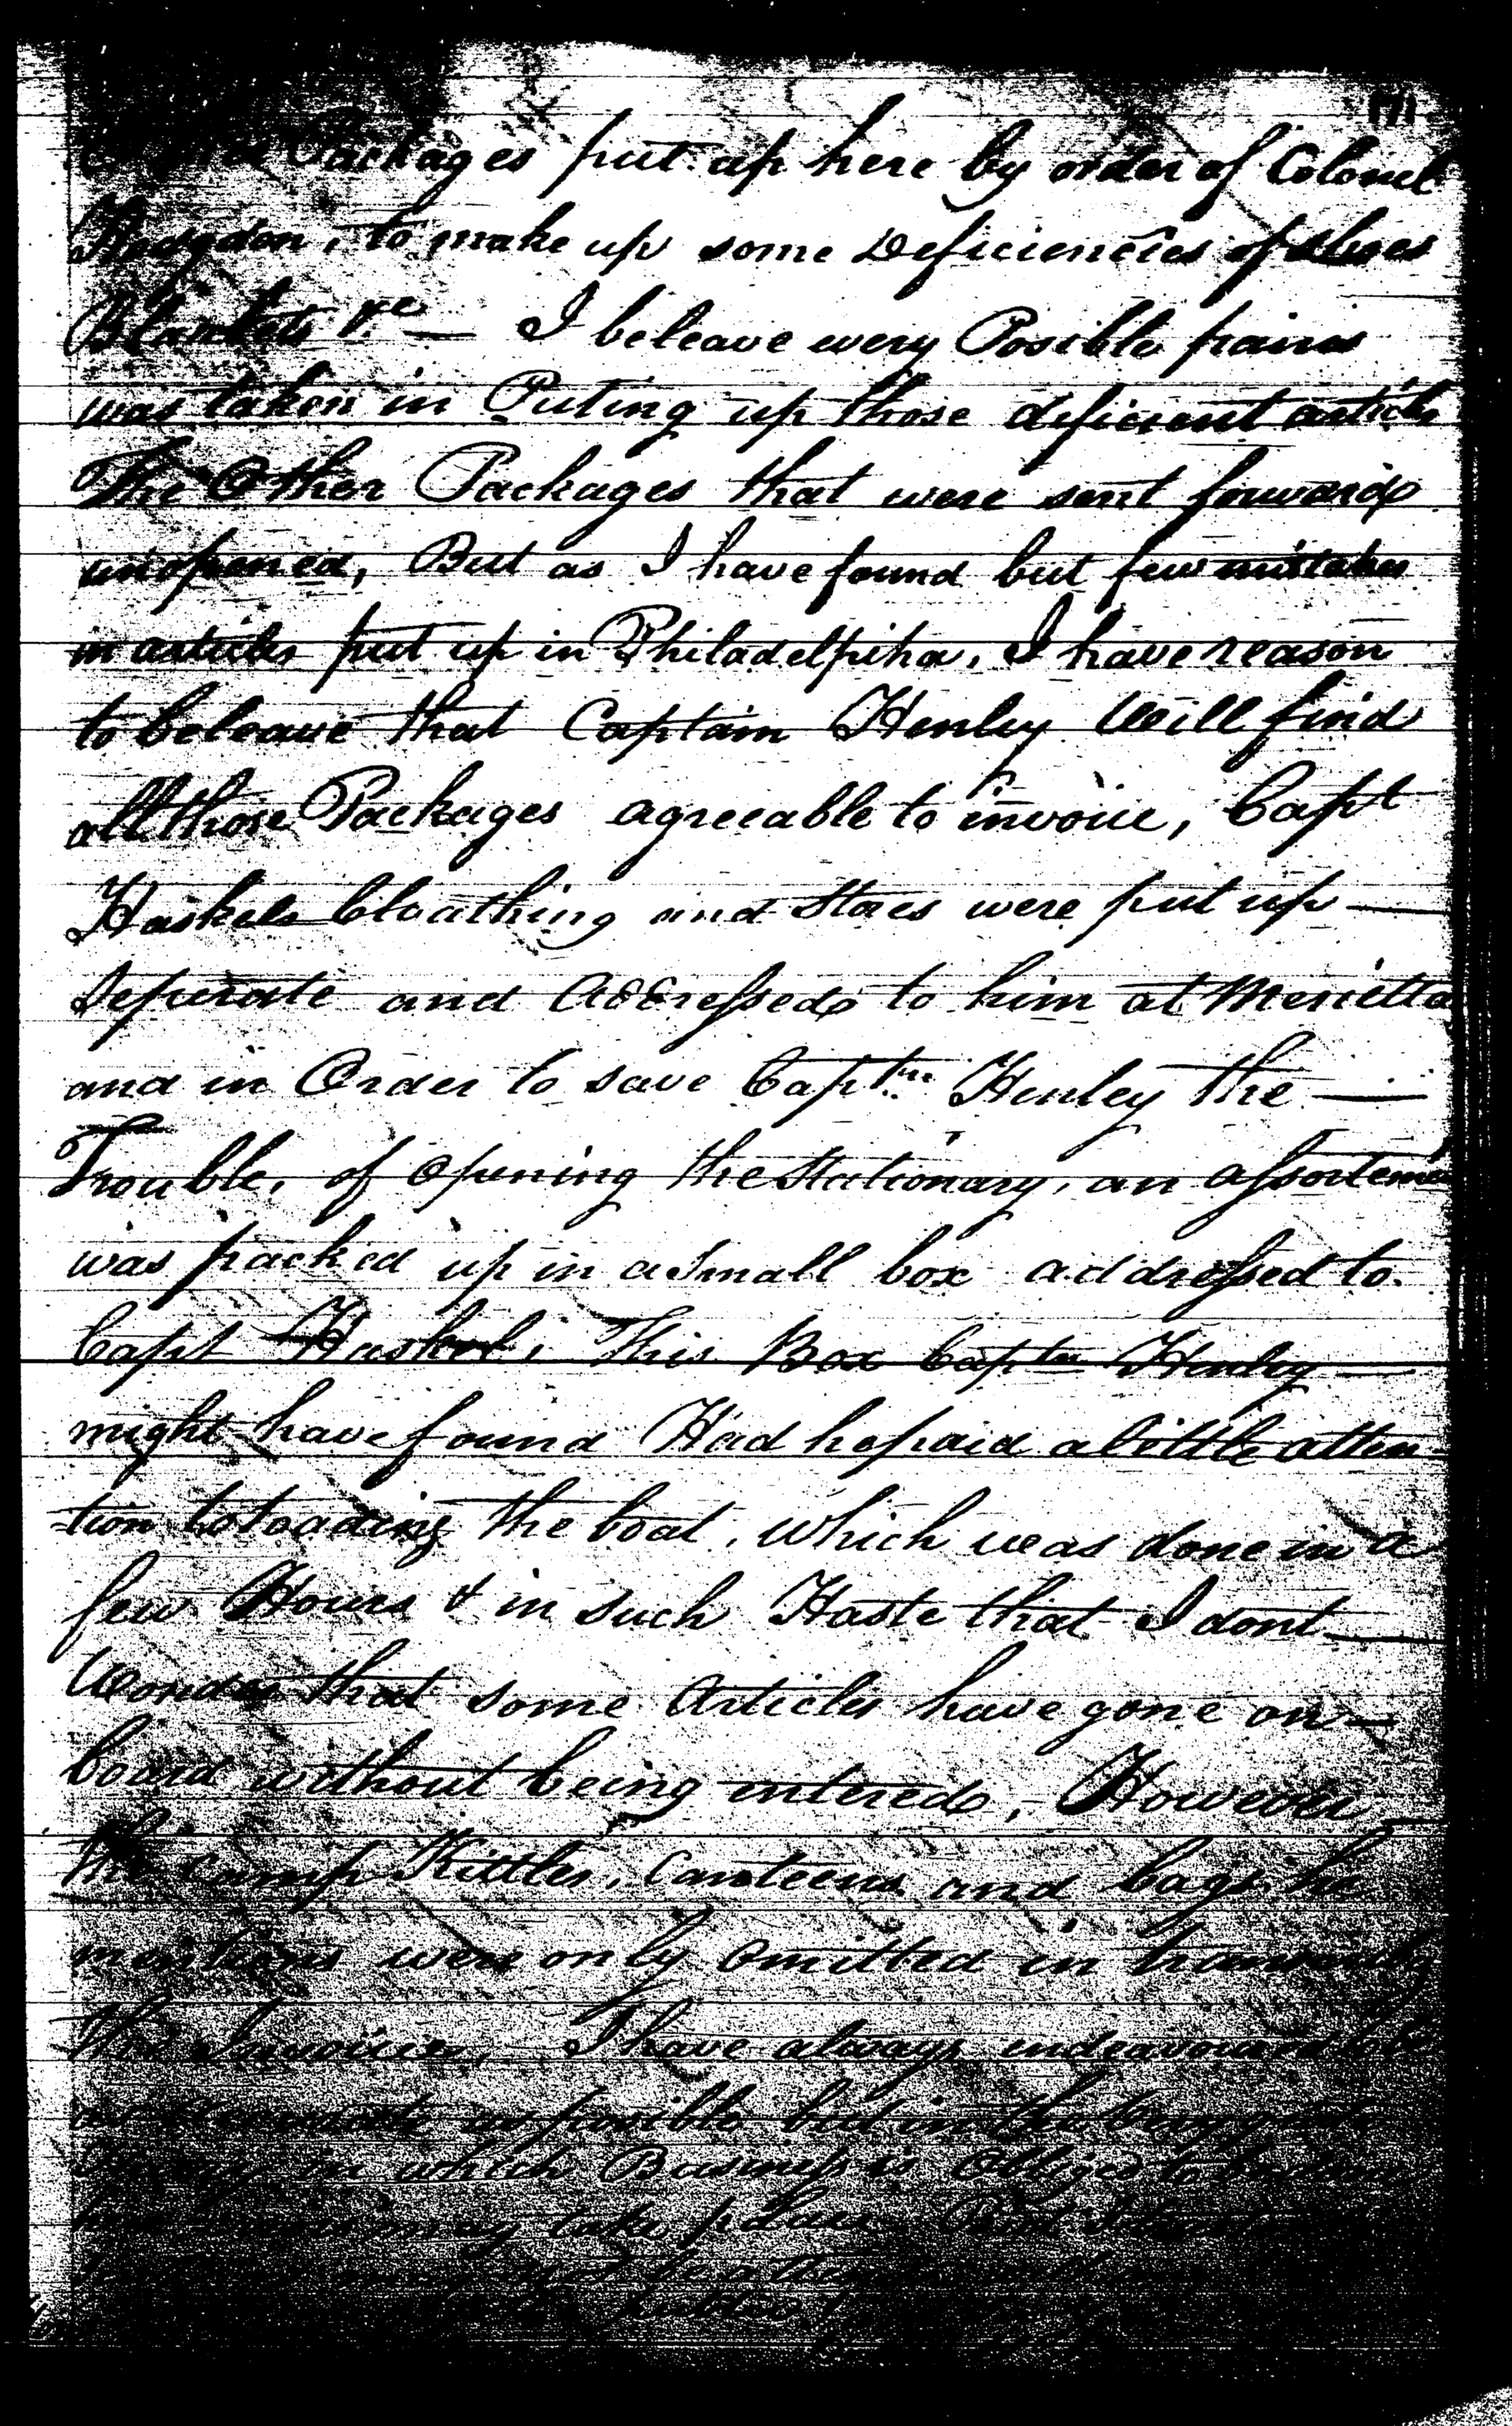 171
Packages put up here by order of Colonel
Hodgdon, to make up some Deficiencies of Shoes
Blankets &c — I beleave every Posible pains
was taken in Puting up those deficient article
The Other Packages that were sent forward
unopened, But as I have found but few mistakes
in articles put up in Philadelpiha, I have reason
to beleave that Captain Henley Will find
all those Packages agreeable to invoice, Capt
Haskels Cloathing and Stores were put up —
Seperate and Addressed to him at Merietta
and in Order to save Captn Henley the —
Trouble, of Opening the Stationary, an assortemt
was packed up in a Small box addressed to
Capt Haskel, This Box Captn Henley —
might have found Had he paid a little atten-
-tion to loading the boat, which was done in a
few Hours & in such Haste that I dont —
Wonder that some Articles have gone on —
board without being entered, However
the Camp Kittles, Canteens and bags he
mentions were only omitted in
the Invoice, I have always endeavoured to be
as possible but in the
in which Business is Obliged to
may take place But